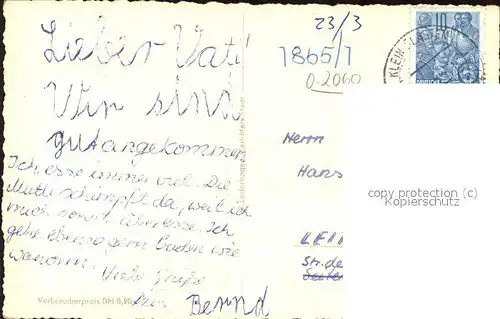 23/3
1865/1
0-2060
10
KLEIN
Lieber Vati!
Wir sind
gut angekommen
Ich esse immer viel. Die
Mutti schimpft da, weil ich
mich sonst überesse. Ich
gehe ebenso gern baden wie
wandern. Viele Grüße
Dein Bernd
Verbraucherpreis DM 0,20
Herrn
Hans
copy protection (c)
Kopierschutz
LEI
Str. de